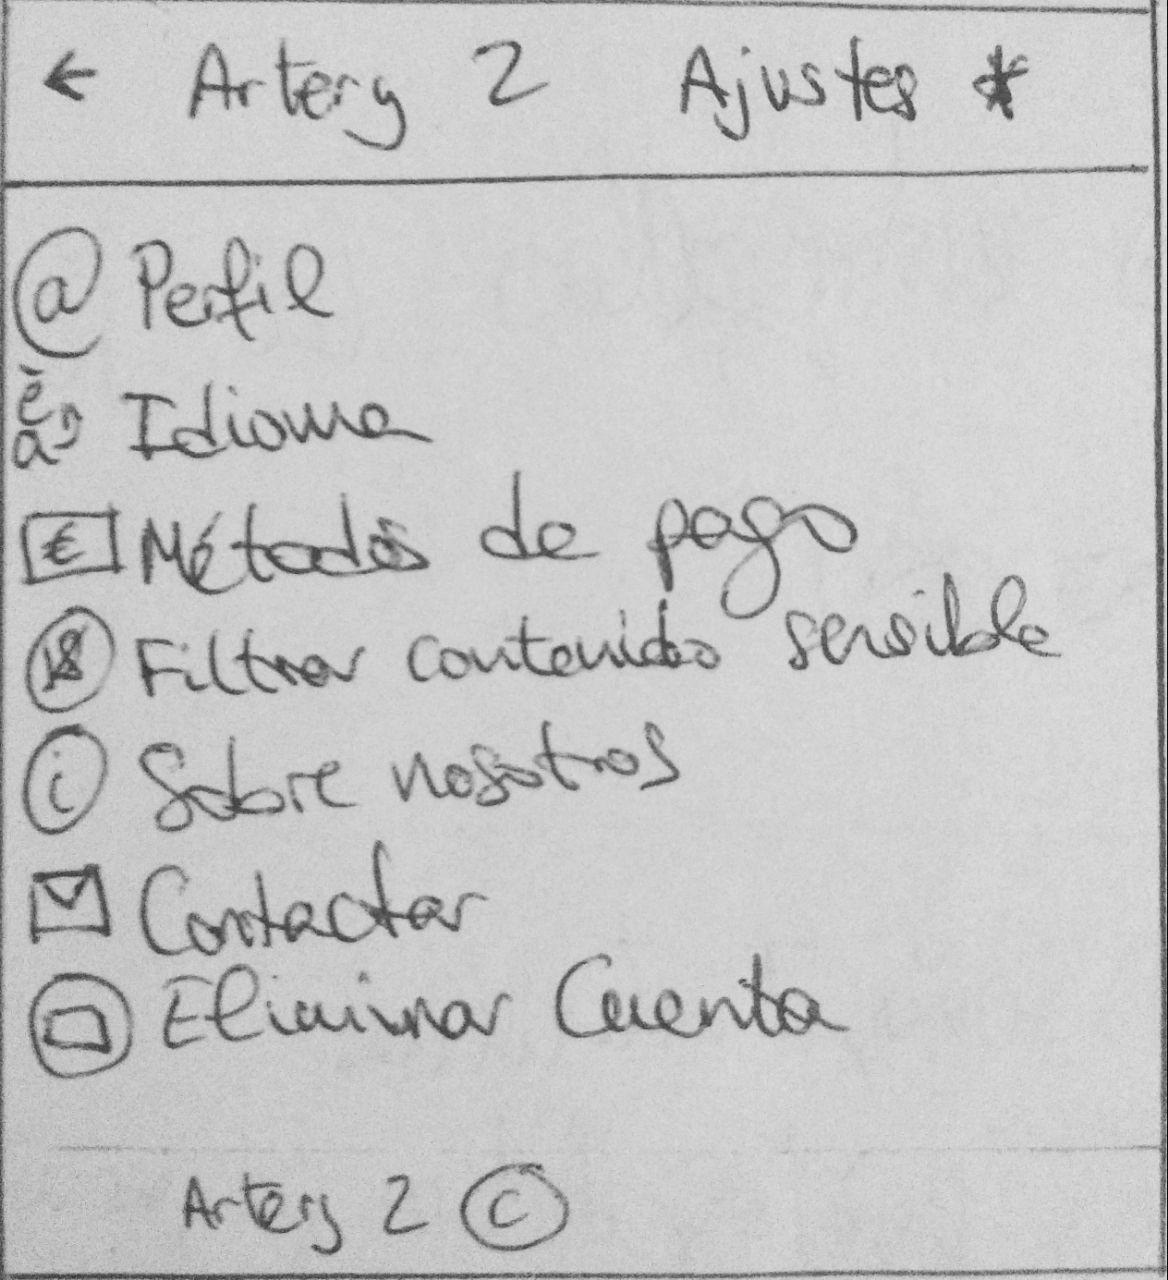 ← Artery 2 Ajustes *
@ Perfil
é a Idioma
€ Métodos de pago
18 Filtrar contenido sensible
i Sobre nosotros
Contactar
Eliminar Cuenta
Artery 2 ©